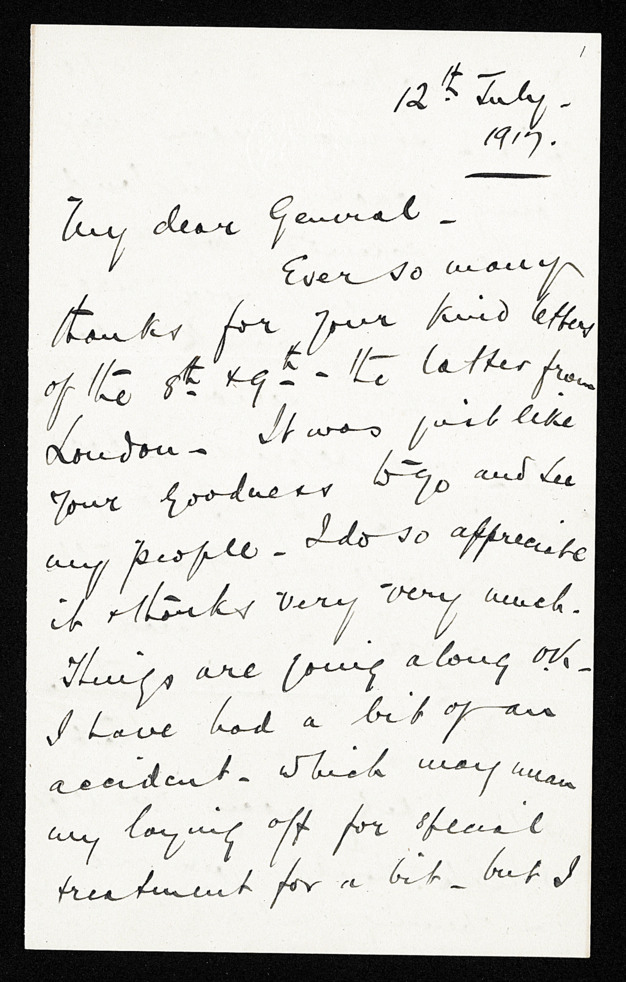 1
12th July -
1917.
My dear General -
Ever so many
thanks for your kind letters
of the 8th & 9th - the latter from
London - It was just like
your goodness to go and see
my people - I do so appreciate
it & thanks very very much.
Things are going along O.K. -
I have had a bit of an
accident - which may mean
my laying off for special
treatment for a bit - but I